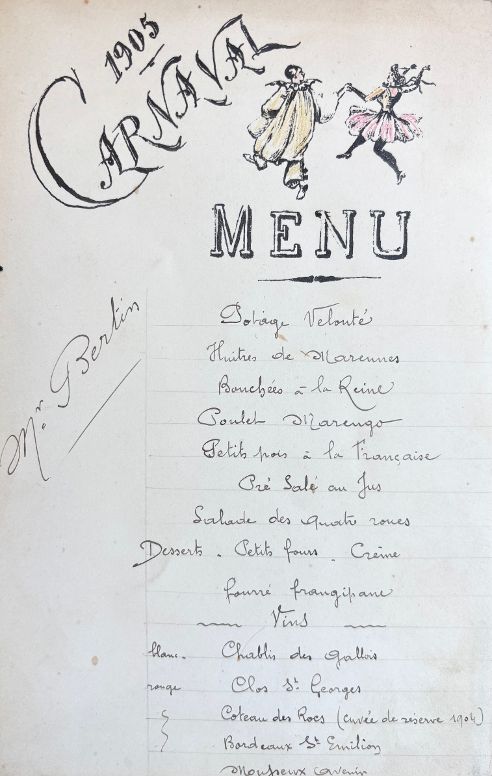 1905
CARNAVAL
MENU
Mr. Bertin
Potage Velouté
Huitres de Marennes
Bouchées à la Reine
Poulet Marengo
Petits pois à la Française
Pré Salé au Jus
Salade des quatre roues
Desserts - Petits fours - Crême
fourré frangipane
Vins
blanc - Chablis des Gallois
rouge Clos St Georges
Coteau des Rocs (cuvée de réserve 1904)
Bordeaux St Emilion
Mousseux